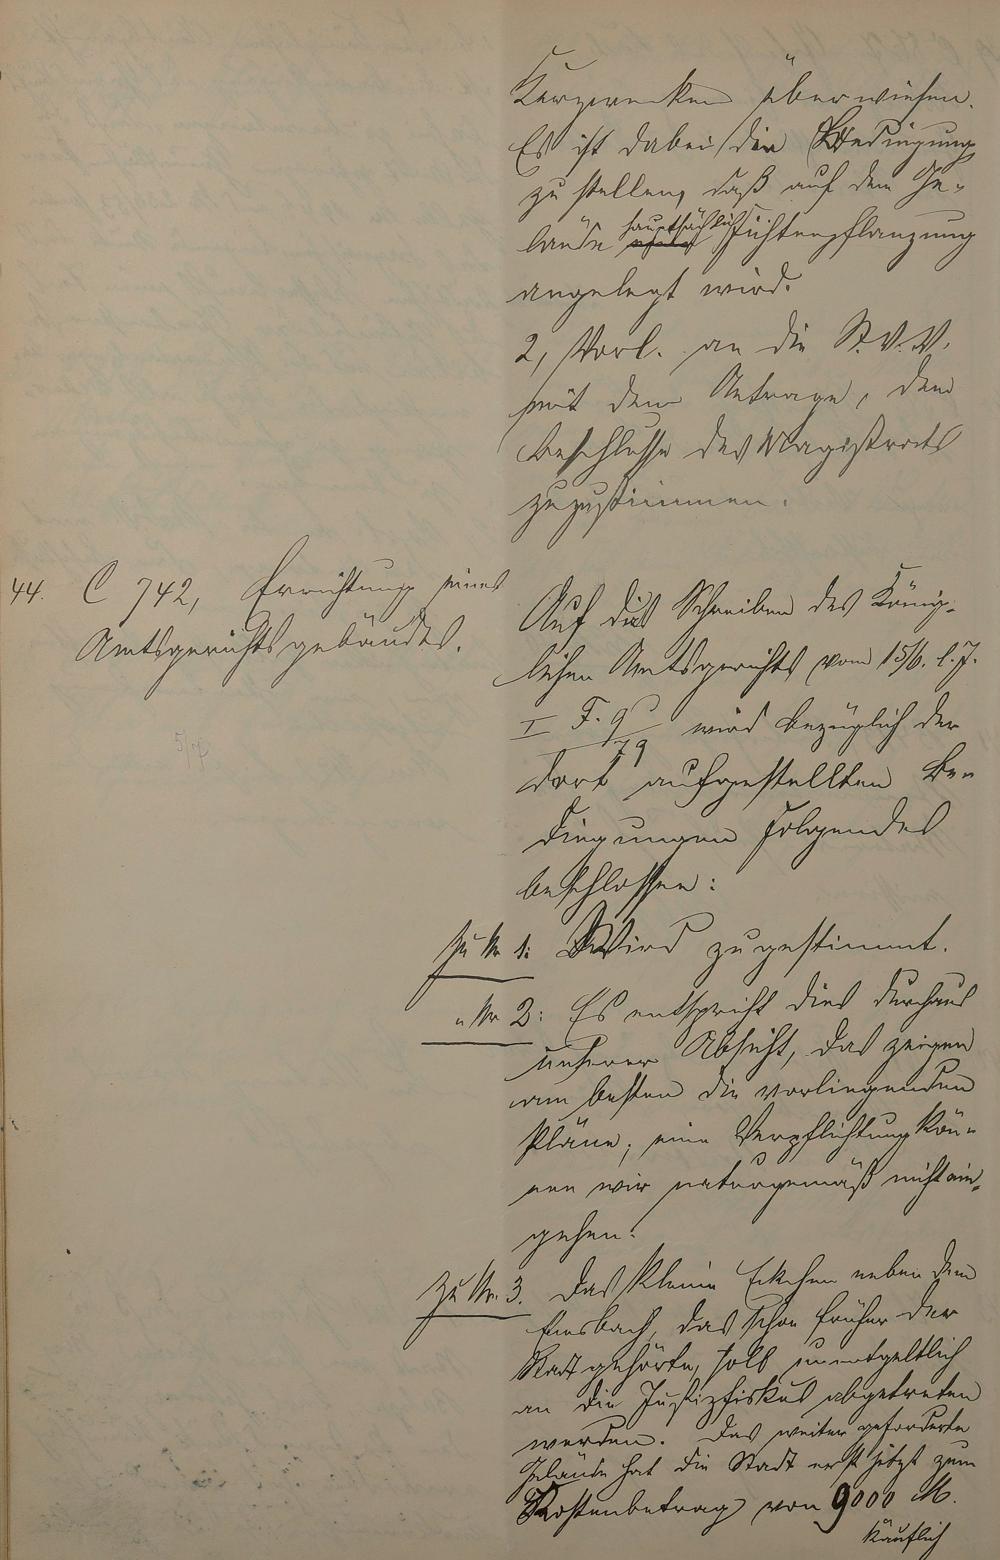 Kurzwecken überwiesen.
Es ist dabei die Bedingung
zu stellen, daß auf dem Ge-
lände hauptsächlich Fichtenpflanzung
angelegt wird.
2, Vorl. an die St. V. V.
mit dem Antrage, dem
Beschlusse des Magistrats
zuzustimmen.
44. C 742, Errichtung eines
Amtsgerichtsgebäudes.
5/7
Auf das Schreiben des König-
lichen Amtsgerichts vom 15/6. l. J.
I F. 9
79 wird bezüglich der
dort aufgestellten Be-
dingungen folgendes
beschlossen:
Zu Nr 1: Wird zugestimmt.
" Nr 2: Es entspricht dies durchaus
unserer Absicht, das zeigen
am besten die vorliegenden
Pläne; eine Verpflichtung kön-
nen wir naturgemäß nicht ein-
gehen.
Zu Nr. 3. Das kleine Eckchen neben dem
Emsbach, das schon früher der
Stadt gehörte, soll unentgeltlich
an die Justizfiskus abgetreten
werden. Das weiter geforderte
Gelände hat die Stadt erst jetzt zum
Kostenbetrag von 9000 M.
käuflich